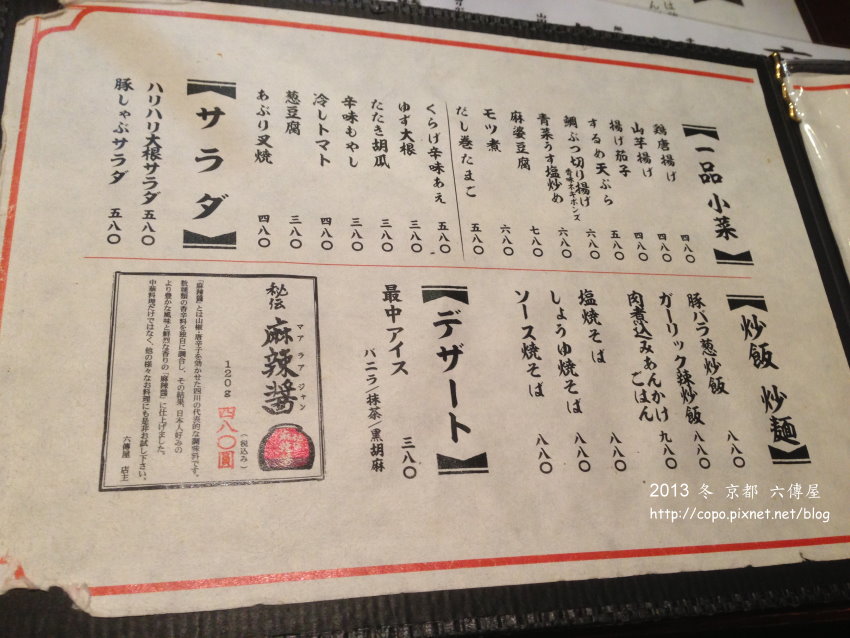 一品 小菜
鶏唐揚げ 四八〇
山芋揚げ 四八〇
揚げ茄子 四八〇
するめ天ぷら 五八〇
鯛ぶつ切り揚げ 六八〇
香味ネギポンズ
青菜うす塩炒め 六八〇
麻婆豆腐 七八〇
モツ煮 六八〇
だし巻たまご 五八〇
くらげ辛味あえ 五八〇
ゆず大根 三八〇
たたき胡瓜 三八〇
辛味もやし 三八〇
冷しトマト 四八〇
葱豆腐 三八〇
あぶり叉焼 四八〇
サラダ
ハリハリ大根サラダ 五八〇
豚しゃぶサラダ 五八〇
炒飯 炒麺
豚バラ葱炒飯 八八〇
ガーリック辣炒飯 八八〇
肉煮込みあんかけ
ごはん 九八〇
塩焼そば 八八〇
しょうゆ焼そば 八八〇
ソース焼そば 八八〇
デザート
最中アイス 三八〇
バニラ/抹茶/黒胡麻
秘伝 麻辣醤
マア ラア ジャン
120g 四八〇圓
(税込み)
「麻辣醤」とは山椒・唐辛子を効かせた四川の代表的な調味料です。
数種類の香辛料を独自に調合し、その結果、日本人好みの
より豊かな風味と鮮烈な香りの「麻辣醤」に仕上げました。
中華料理だけではなく、他の様々なお料理にも是非お試し下さい。
六傳屋 店主
2013 冬 京都 六傳屋
http://copo.pixnet.net/blog